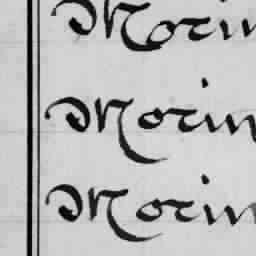 Morin
Morin
Morin